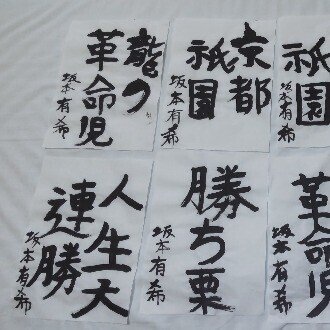 龍の
革命児
坂本有希
京都
祇園
坂本有希
祇園
坂本有希
人生大
連勝
坂本有希
勝ち栗
坂本有希
革命児
坂本有希